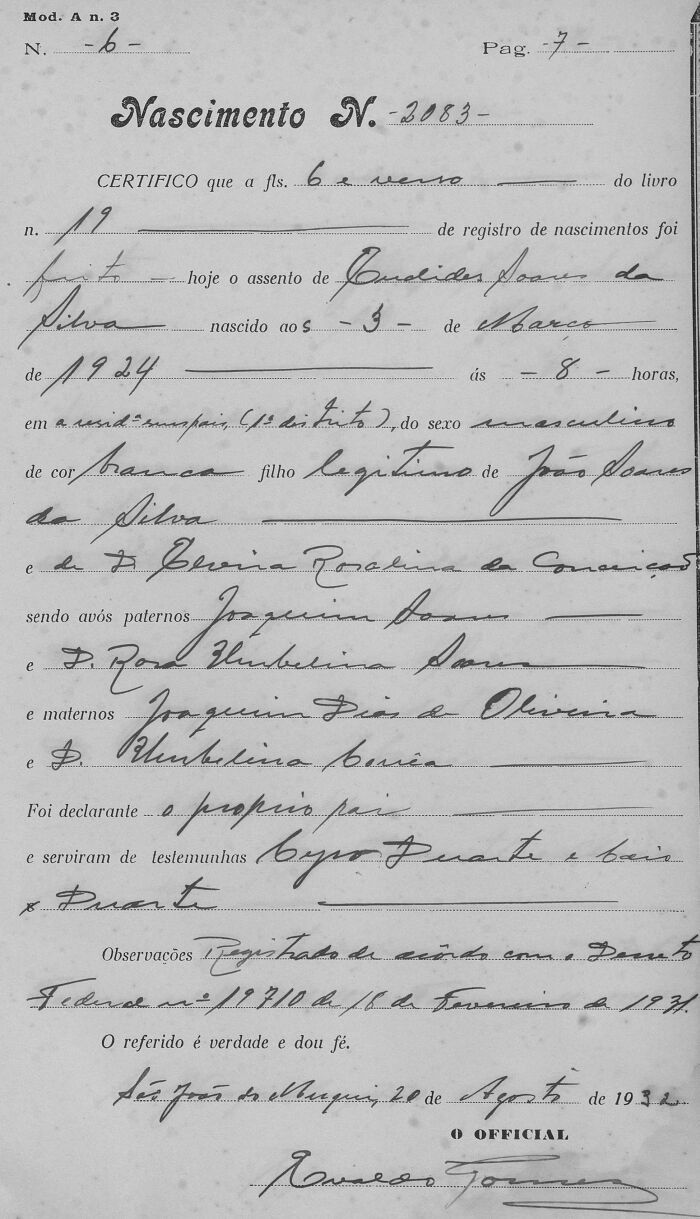 Mod. A n. 3
N. -6- Pag. -7-
Nascimento N. -2083-
CERTIFICO que a fls. 6 e verso do livro
n. 19 de registro de nascimentos foi
feito hoje o assento de Euclides Soares da
Silva nascido aos -3- de Março
de 1924 ás -8- horas,
em a resid.ª seus pais, (1º districto), do sexo masculino
de cor branca filho legitimo de João Soares
da Silva
e de D. Elvira Rosalina da Conceição
sendo avós paternos Joaquim Soares
e D. Rosa Umbelina Soares
e maternos Joaquim Dias de Oliveira
e D. Umbelina Corrêa
Foi declarante o proprio pai
e serviram de testemunhas Cyro Duarte e Caio
Duarte
Observações Registrado de acôrdo com o Decreto
Federal nº 19710 de 18 de Fevereiro de 1931.
O referido é verdade e dou fé.
São João do Muquy, 20 de Agosto de 1932
O OFFICIAL
Evaldo Gomes